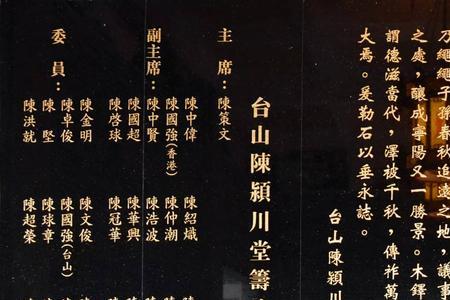 乃繩繩子孫春秋追遠之地，議事
之處，釀成寧陽又一勝景。木鐸
謂德滋當代，澤被千秋，傳祚萬
大焉。爰勒石以垂永誌。
台山陳潁川
台山陳潁川堂籌
主席：陳策文
陳中偉 陳紹熾
陳國強(香港) 陳仲潮
副主席：陳中賢 陳浩波
陳國超 陳華興
陳啓球 陳冠華
委員：
陳金明 陳文俊
陳卓俊 陳國強(台山)
陳堅 陳球章
陳洪就 陳超榮